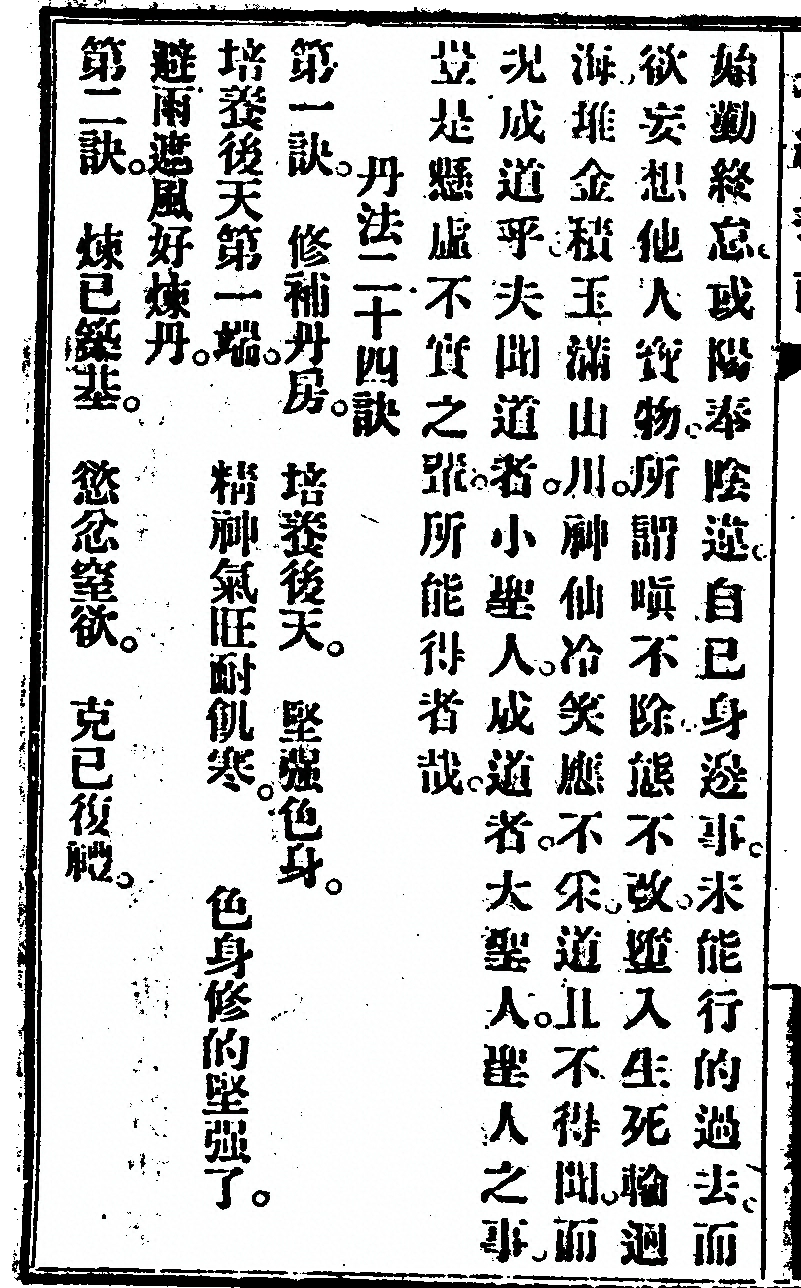 始勤終怠。或陽奉陰違。自己身邊事。未能行的過去。而
欲妄想他人寶物。所謂嗔不除態不改。墮入生死輪迴
海。堆金積玉滿山川。神仙冷笑應不采。道且不得聞。而
况成道乎。夫聞道者。小聖人。成道者。大聖人。聖人之事。
豈是懸虛不實之輩。所能得者哉。
丹法二十四訣
第一訣。 修補丹房。 培養後天。 堅强色身。
培養後天第一端。 精神氣旺耐飢寒。 色身修的堅强了。
避雨遮風好煉丹。
第二訣。 煉已築基。 慾忿窒欲。 克已復禮。